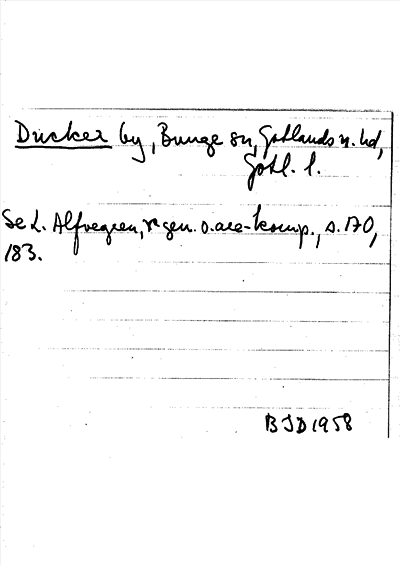 Ducker by, Bunge sn, Gotlands n. hd,
Gotl. l.
Se L. Alfvegren, r-gen. o. ack-komp., s. 170,
183.
BJD 1958